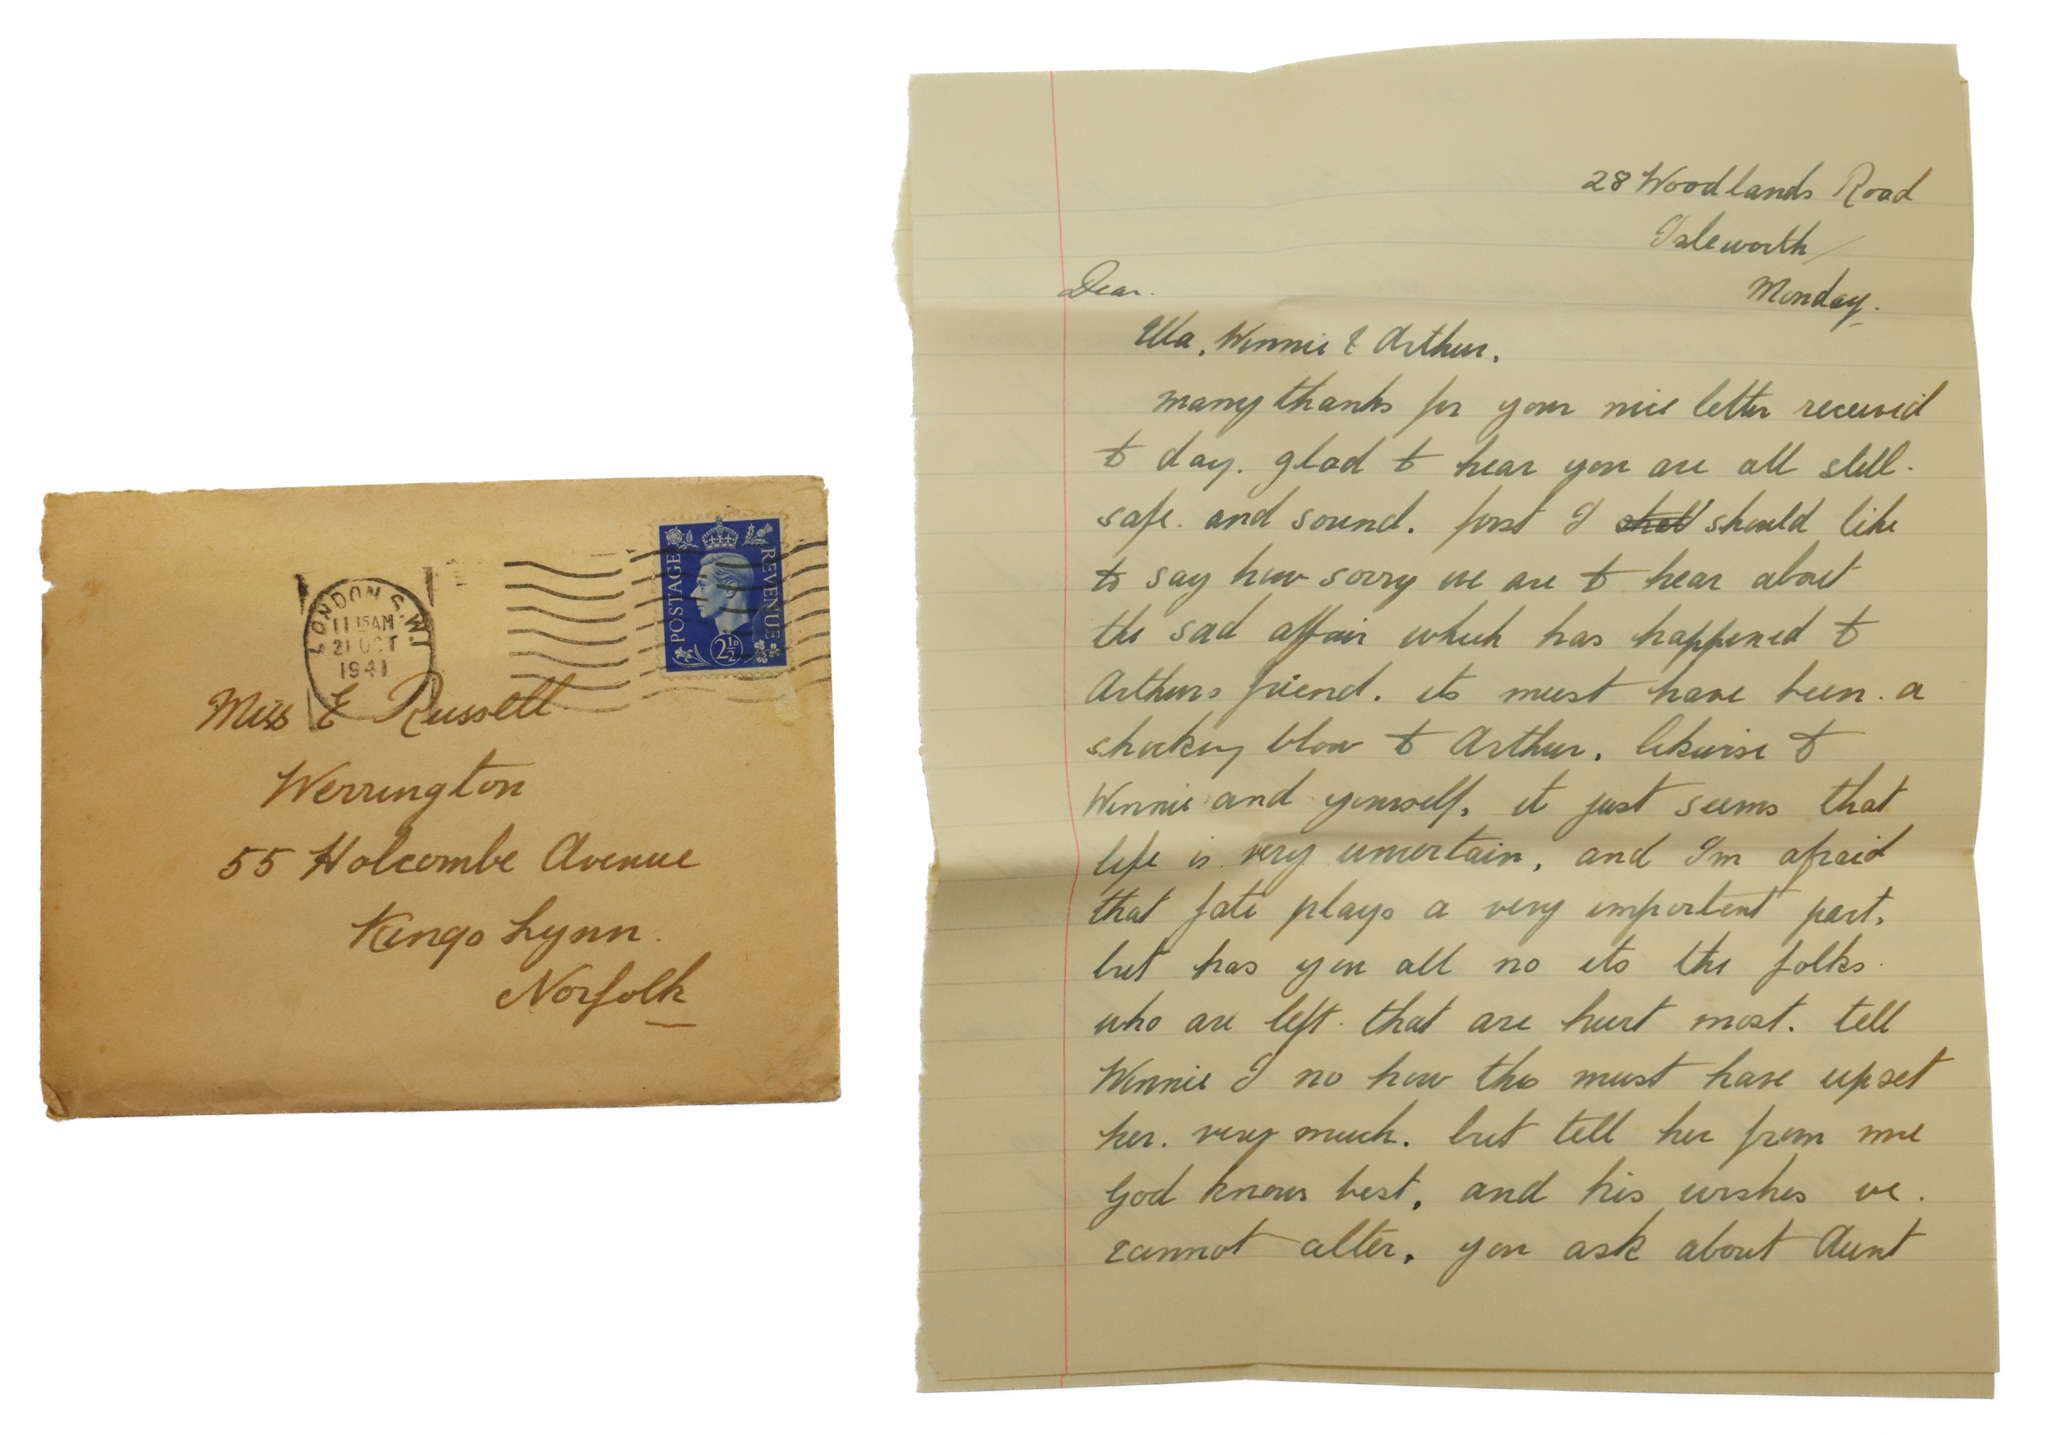 LONDON S.W.1
11 15 AM
21 OCT
1941
POSTAGE
REVENUE
2½D
Miss E Russell
Werrington
55 Holcombe Avenue
Kings Lynn.
Norfolk
28 Woodlands Road
Isleworth
Monday.
Dear.
Ella, Winnie & Arthur.
many thanks for your nice letter received
to day. glad to hear you are all still.
safe. and sound. first I should like
to say how sorry we are to hear about
the sad affair which has happened to
Arthurs friend. its must have been. a
shocking blow to Arthur. likewise to
Winnie and yourself. it just seems that
life is very uncertain, and I'm afraid
that fate plays a very important part.
but has you all no its the folks.
who are left. that are hurt most. tell
Winnie I no how this must have upset
her. very much. but tell her from me
God knows best, and his wishes we.
cannot alter. you ask about Aunt